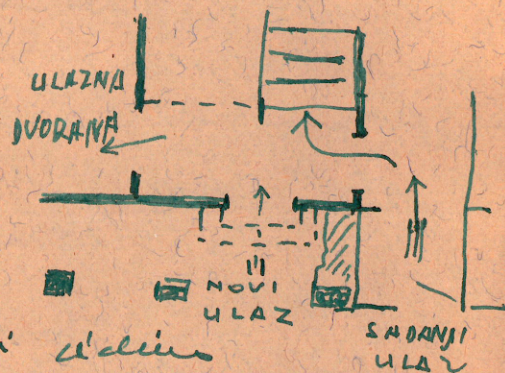 ULAZNA
DVORANA
NOVI
ULAZ
SADANJI
ULAZ